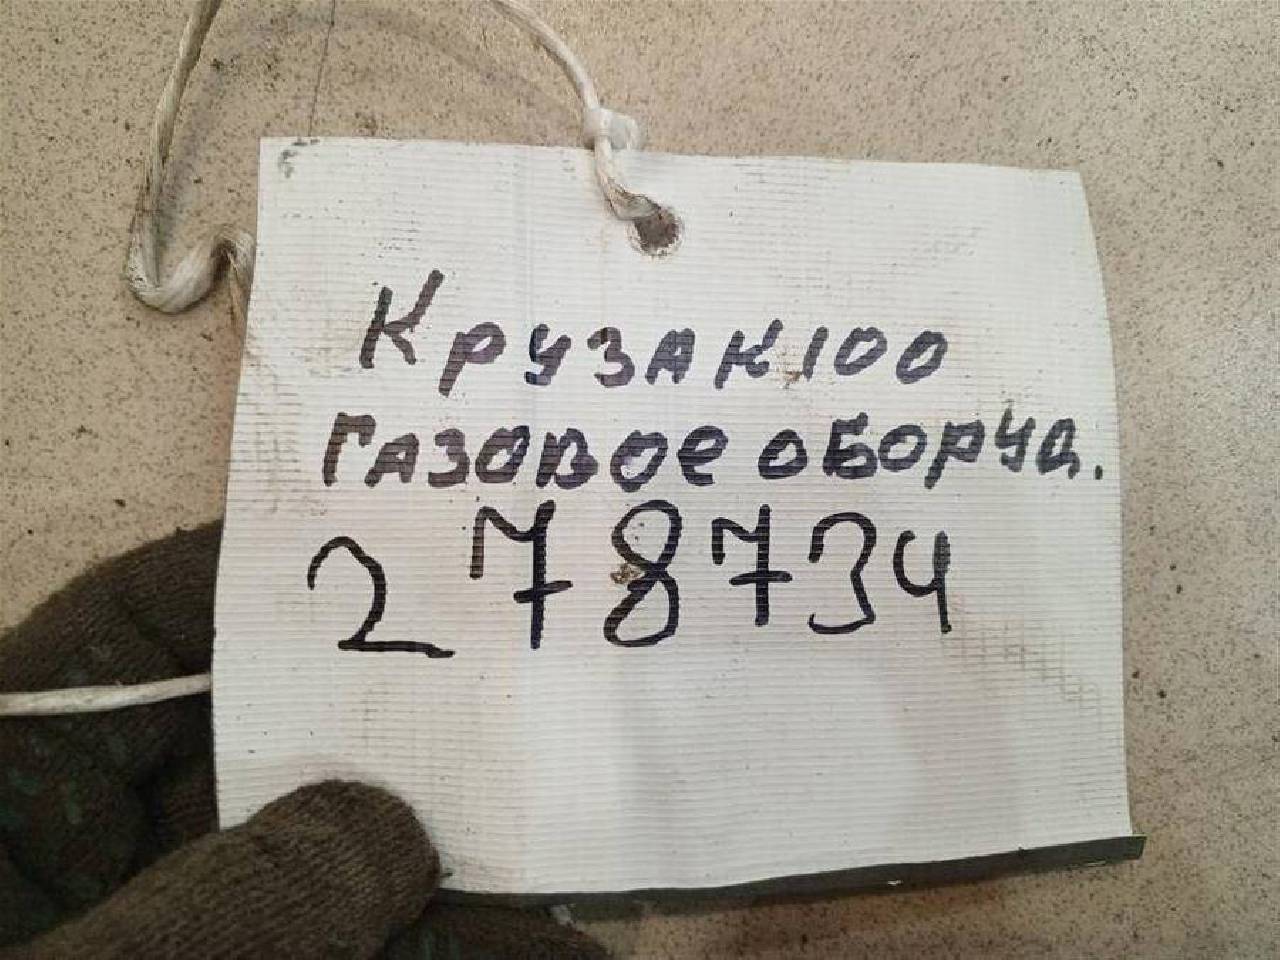 Крузак 100
Газовое оборуд.
278734